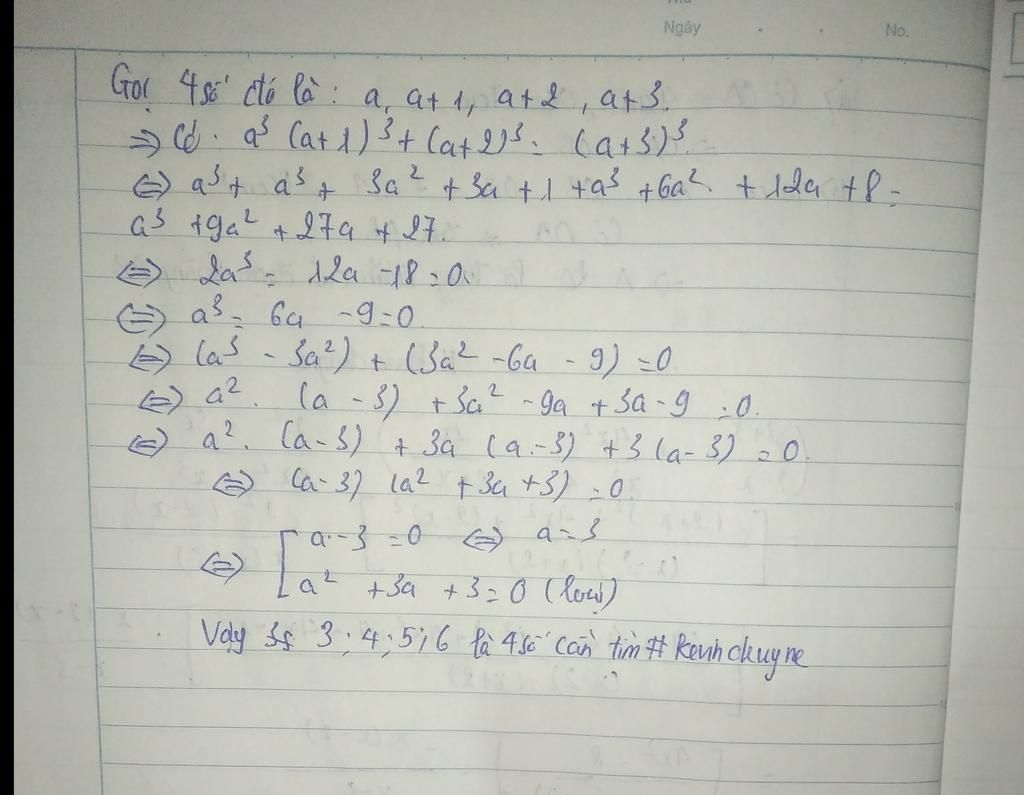 Ngày No.
Gọi 4 số đó là : a, a+1, a+2, a+3.
⇒ Có. a³ (a+1)³ + (a+2)³ = (a+3)³
⇔ a³ + a³ + 3a² + 3a + 1 + a³ + 6a² + 12a + 8 =
a³ + 9a² + 27a + 27.
⇔ 2a³ = 12a - 18 = 0.
⇔ a³ = 6a - 9 = 0
⇔ (a³ - 3a²) + (3a² - 6a - 9) = 0
⇔ a². (a - 3) + 3a² - 9a + 3a - 9 = 0.
⇔ a². (a - 3) + 3a (a - 3) + 3 (a - 3) = 0.
⇔ (a - 3) (a² + 3a + 3) = 0.
⇔ [ a - 3 = 0 ⇔ a = 3
a² + 3a + 3 = 0 (loại)
Vậy 3 ; 4 ; 5 ; 6 là 4 số cần tìm #